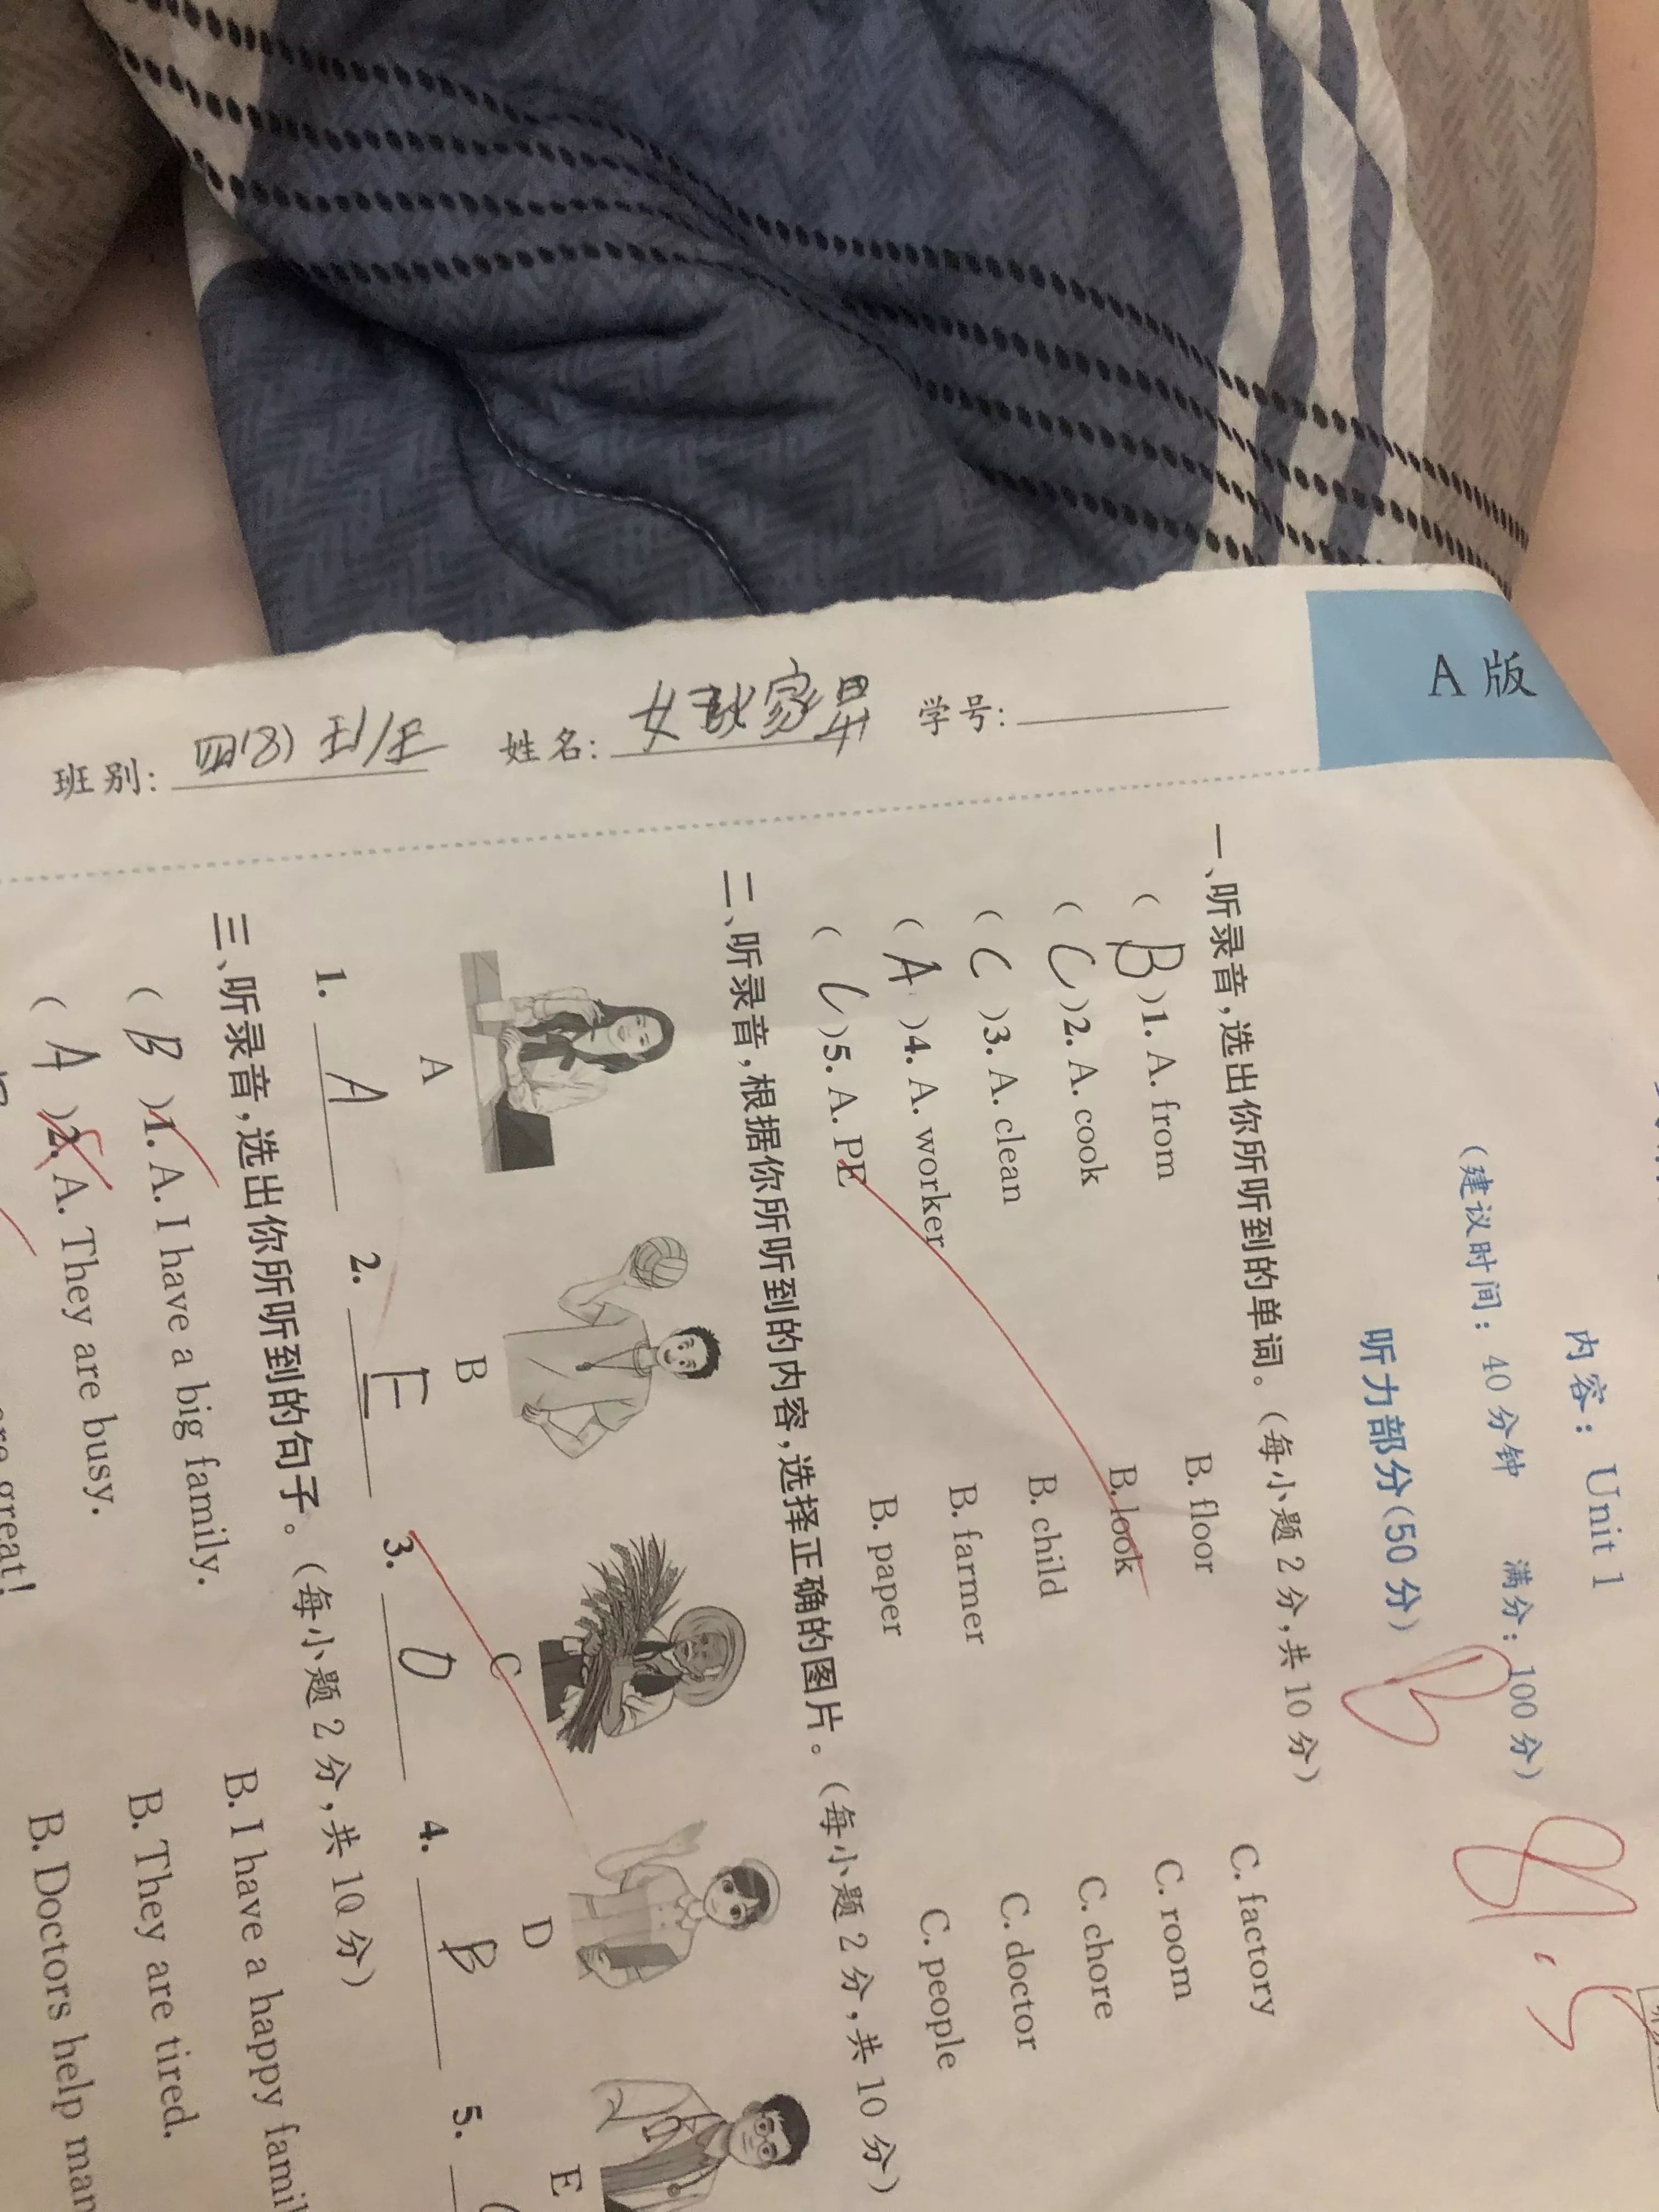 A 版
内容：Unit 1
(建议时间：40 分钟 满分：100 分)
听力部分(50 分)
B
班别：四(8) 姓名： 学号：
一、听录音，选出你所听到的单词。(每小题 2 分，共 10 分)
( B )1. A. from B. floor C. factory
( C )2. A. cook B. look C. room
( C )3. A. clean B. child C. chore
( A )4. A. worker B. farmer C. doctor
( C )5. A. PE B. paper C. people
二、听录音，根据你所听到的内容，选择正确的图片。(每小题 2 分，共 10 分)
A B C D E
1. A 2. E 3. D 4. B 5.
三、听录音，选出你所听到的句子。(每小题 2 分，共 10 分)
( B )1. A. I have a big family. B. I have a happy famil
( A )2. A. They are busy. B. They are tired.
great! B. Doctors help man